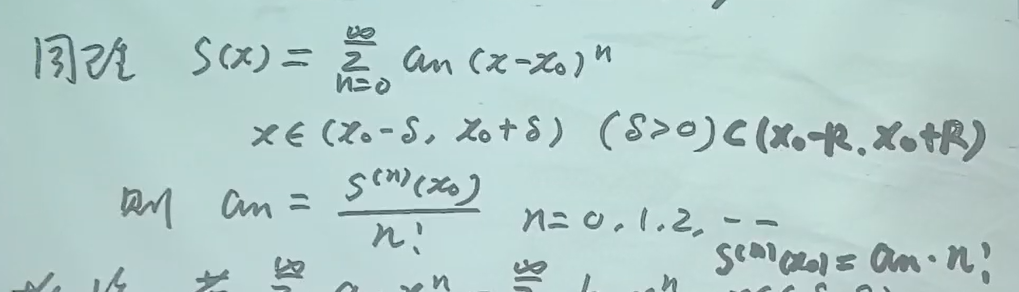 同理 S(x) = ∑_{n=0}^{∞} an (x-x₀)ⁿ
x∈(x₀-δ, x₀+δ) (δ>0)⊂(x₀-R, x₀+R)
则 an = S⁽ⁿ⁾(x₀)/n! n=0,1,2,--
S⁽ⁿ⁾(x₀) = an·n!